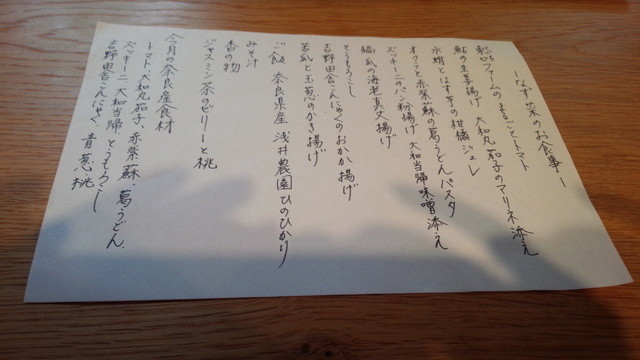 ーなず菜のお食事ー
ファームのまるごとトマト
鮎の生姜揚げ 大和丸茄子のマリネ添え
水蛸とはす芋の柑橘ジュレ
オクラと赤紫蘇の葛うどんパスタ
ズッキーニのパン粉揚げ 大和当帰味噌添え
瓜の海老真丈揚げ
とうもろこし
吉野田舎こんにゃくのおかか揚げ
苦瓜と玉葱のかき揚げ
ご飯 奈良県産 浅井農園ひのひかり
みそ汁
香の物
ジャスミン茶のゼリーと桃
今月の奈良産食材
トマト、大和丸茄子、赤紫蘇、葛うどん、
ズッキーニ、大和当帰、とうもろこし
吉野田舎こんにゃく、青葱、桃